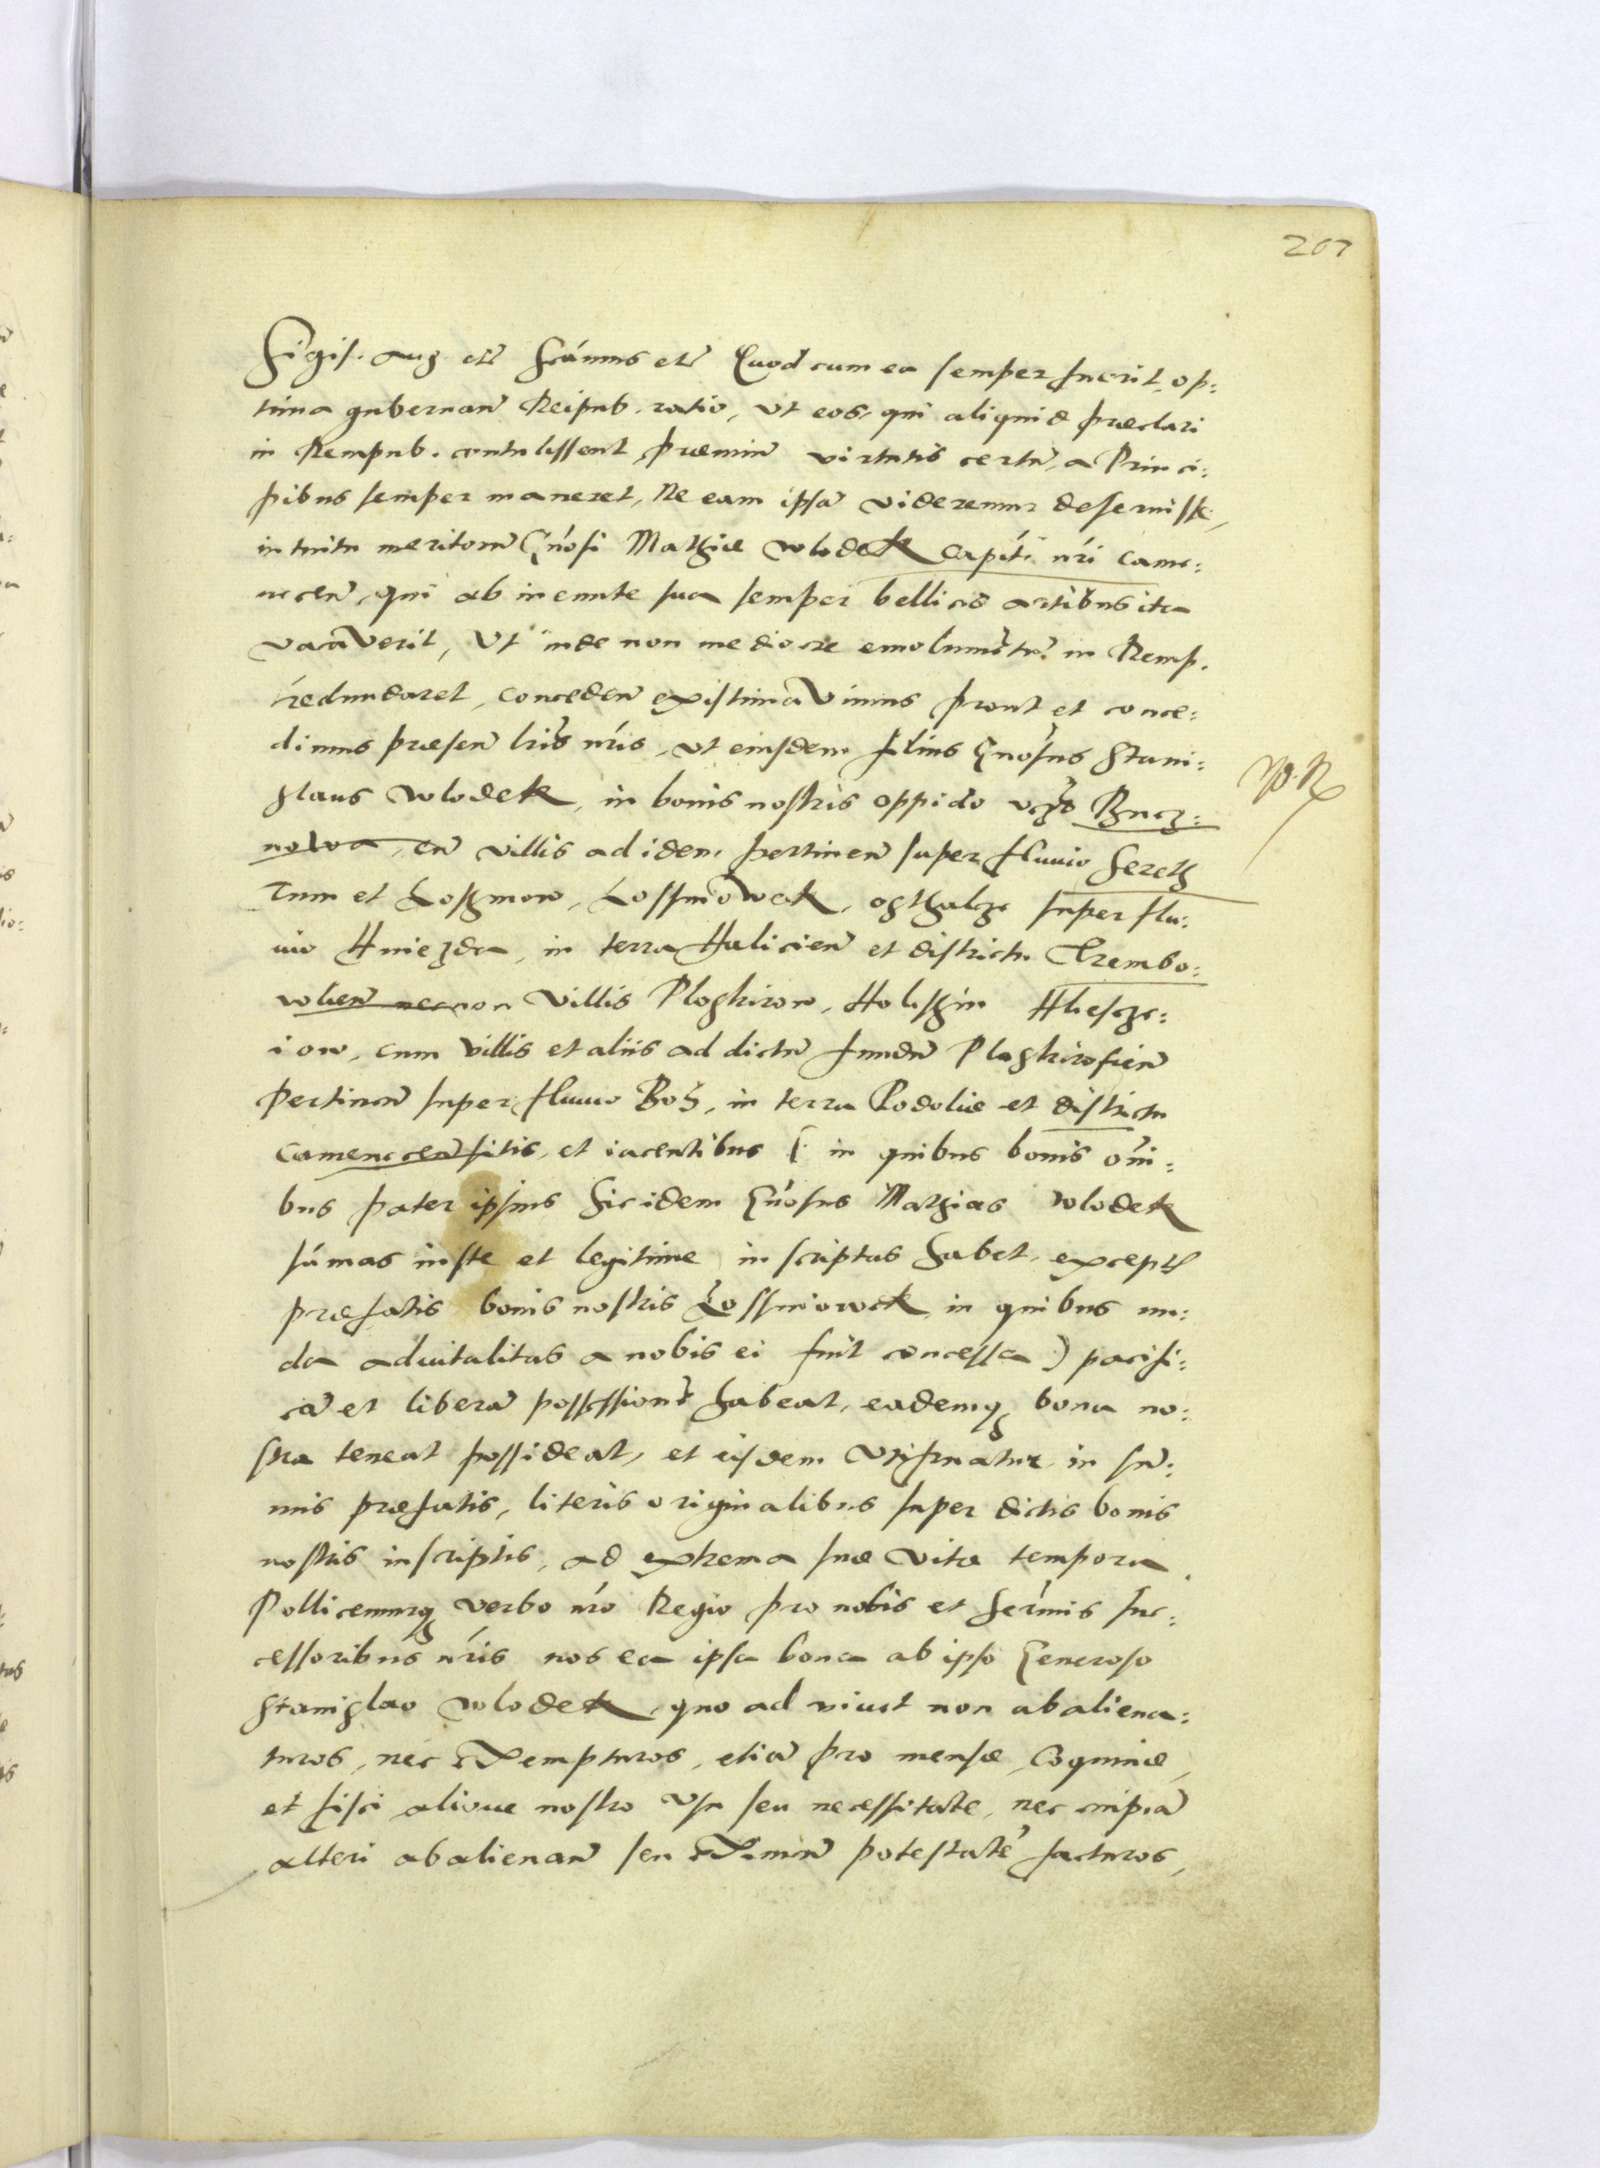 207
Sigis. Aug etc̃ Scímus etc̃ Quod cum ea semper fuerit op:
tima gubernan̄ Reipub. ratio, ut eos, qui aliquid præclari
in Rempub. contulissent, præmiū virtutis certū, a Princi:
pibus semper maneret, Ne eam ipsā videremur deseruisse,
intuitu meritorū Gńosi Mathiæ Wlodek Capítí ńri Came:
necen̄, qui ab ineunte sua semper bellicis artibus ita
vacaverit, Ut inde non mediocre emolumētū in Remp.
redundaret, conceden̄ existimavimus prout et conce:
dimus præsen̄ lr̃is ńris, ut eiusdem filius Gńosus Stani:
slaus Wlodek, in bonis nostris oppido vcz̃t Bucz:
nowa, cū villis ad idem pertinen̄ super fluvio Sereth
Tum et Loszmow, Lossniowek, super flu:
vio Hniezda, in terra Halicien̄ et districtu Trembo:
wlien̄ necnon villis Ploskirow, Holeszin
iow, cum villis et aliis ad dictū fundū Ploskirofien̄
pertinen̄ super fluvio Boh, in terra Podoliæ et districtu
Camenecen̄ sitis, et iacentibus (: in quibus bonis om̃i:
bus pater ipsius hic idem Gńosus Mathias Wlodek
súmas iuste et legitime inscriptas habet, exceptis
præfatis bonis nostris Lossniowek in quibus nu:
da advitalitas a nobis ei fuit concessa) pacifi:
cā et liberā possessionē habeat, eademq bona no:
stra teneat possideat, et eisdem utifruatur in sū:
mis præfatis, literis originalibus super dictis bonis
nostris inscriptis, ad extrema suæ vitæ tempora.
Pollicemurq verbo ńro Regio pro nobis et Seŕmis suc:
cessoribus ńris nos ea ipsa bona ab ipso Generoso
Stanislao Wlodek, quo ad vivet non abaliena:
turos, nec exempturos, etiā pro mensæ, Coquinæ,
et fisci aliove nostro usu seu necessitate, nec cuipiā
alteri abalienan̄ seu eximen̄ potestatē facturos,